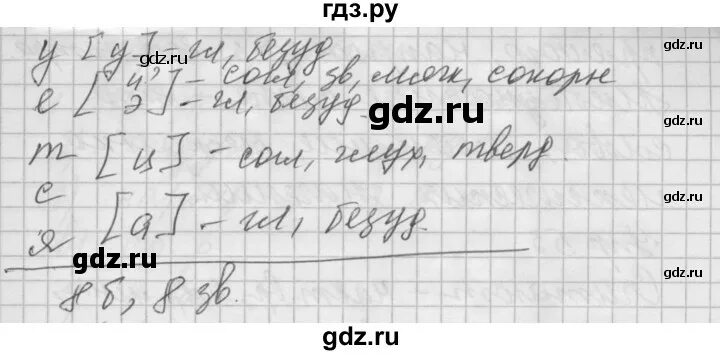 гдз.ру
у [у] – гл, безуд
е [й' – согл, зв, мягк, сонорн
э] – гл, безуд.
т [ц] – согл, глух, тверд.
с
я [а] – гл, безуд.
8 б, 8 зв.
gdz.ru gdz.ru
gdz.ru
gdz.ru gdz.ru
gdz.ru